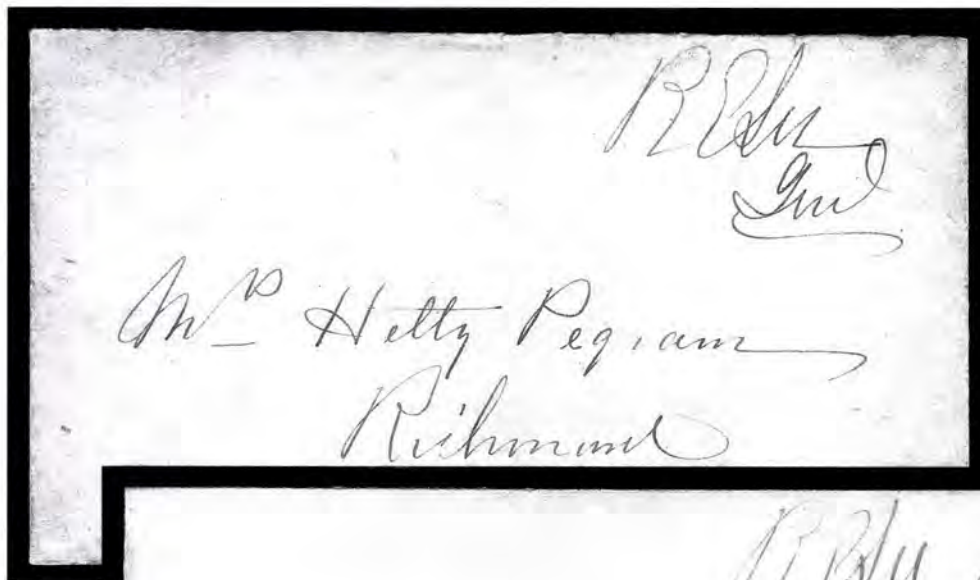 R E Lee
Genl
Mrs Hetty Pegram
Richmond
R E Lee